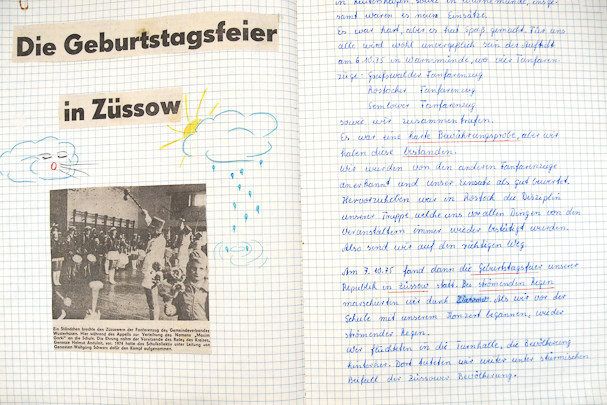 Die Geburtstagsfeier
in Züssow
Ein Ständchen brachte den Züssowern der Fanfarenzug des Gemeindeverbandes
Wusterhusen. Hier während des Appells zur Verleihung des Namens „Maxim
Gorki" an die Schule. Die Ehrung nahm der Vorsitzende des Rates des Kreises,
Genosse Helmut
Genossen Wolfgang Schwarz dafür den Kampf aufgenommen.
samt waren es neun Einsätze.
Es war hart, aber es hat Spaß gemacht. Für uns
alle wird wohl unvergeßlich sein der Auftritt
am 6.10.75 in Warnemünde, wo vier Fanfaren-
züge: Greifswalder Fanfarenzug
Rostocker Fanfarenzug
Semlower Fanfarenzug
sowie wir zusammentrafen.
Es war eine harte Bewährungsprobe, aber wir
haben diese bestanden.
Wir wurden von den anderen Fanfarenzüge
anerkannt und unser Einsatz als gut bewertet.
Hervorzuheben war in Rostock die Disziplin
unserer Truppe welche uns vor allen Dingen von den
Veranstaltern immer wieder bestätigt wurden.
Also sind wir auf den richtigen Weg.
Am 7.10.75 fand dann die Geburtstagsfeier unserer
Republik in Züssow statt. Bei strömenden Regen
marschierten wir durch Züssow. Als wir vor der
Schule mit unserem Konzert begannen, wieder
strömender Regen.
Wir flüchteten in die Turnhalle, die Bevölkerung
hinterher. Dort tuteten wir weiter unter stürmischen
Beifall der Züssower Bevölkerung.